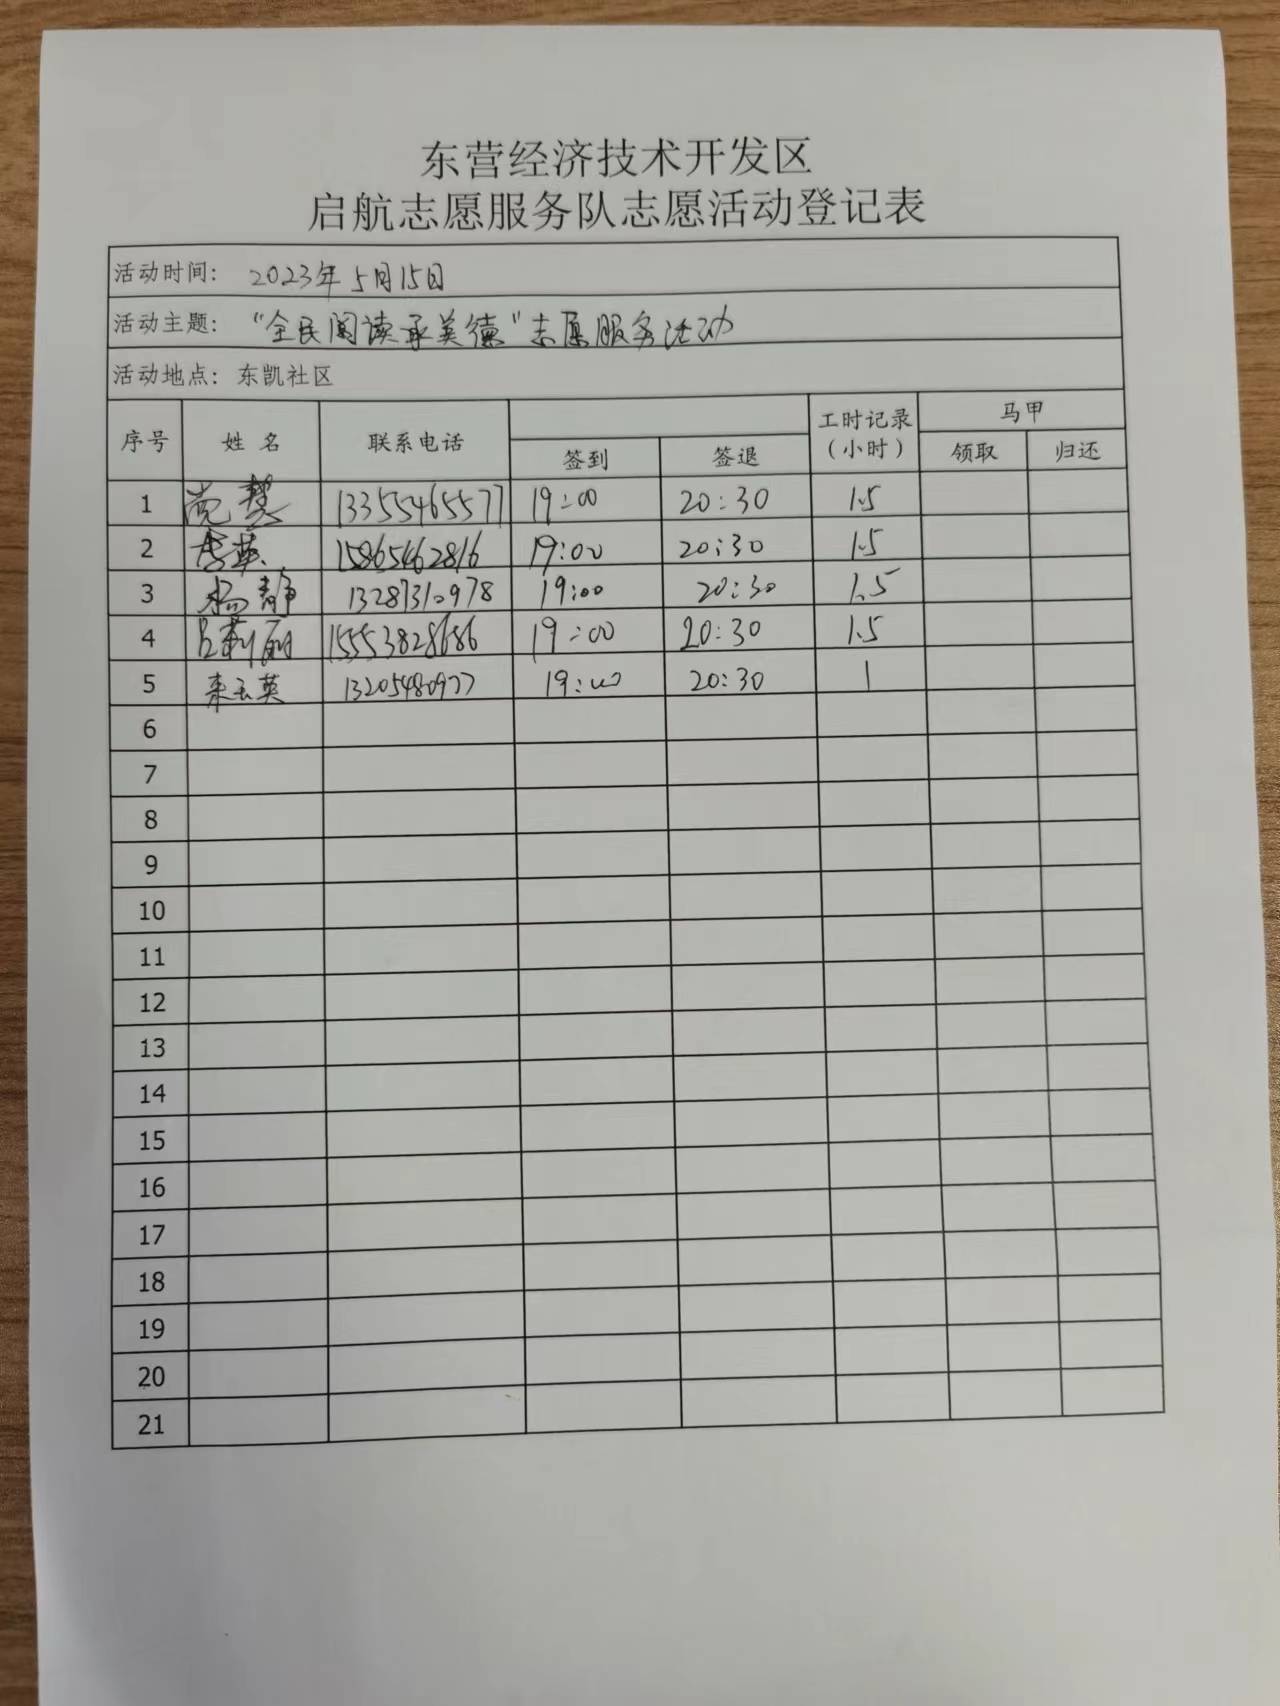 东营经济技术开发区
启航志愿服务队志愿活动登记表
活动时间： 2023年5月15日
活动主题： "全民阅读承美德"志愿服务活动
活动地点：东凯社区
序号 姓名 联系电话 签到 签退 工时记录（小时） 马甲 领取 归还
1 13355465577 19:00 20:30 1.5
2 李英 15865462816 19:00 20:30 1.5
3 杨静 13287310978 19:00 20:30 1.5
4 吕莉丽 15553828686 19:00 20:30 1.5
5 来玉英 13205480977 19:00 20:30 1
6
7
8
9
10
11
12
13
14
15
16
17
18
19
20
21